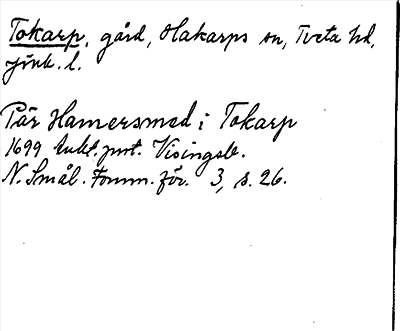 Tokarp, gård, Hakarps sn, Tveta hd,
Jönk. l.
Pär Hamersmed i Tokarp
1699 Ankl. prot. Visingsb.
N. Smål. Fornm. för. 3, s. 26.